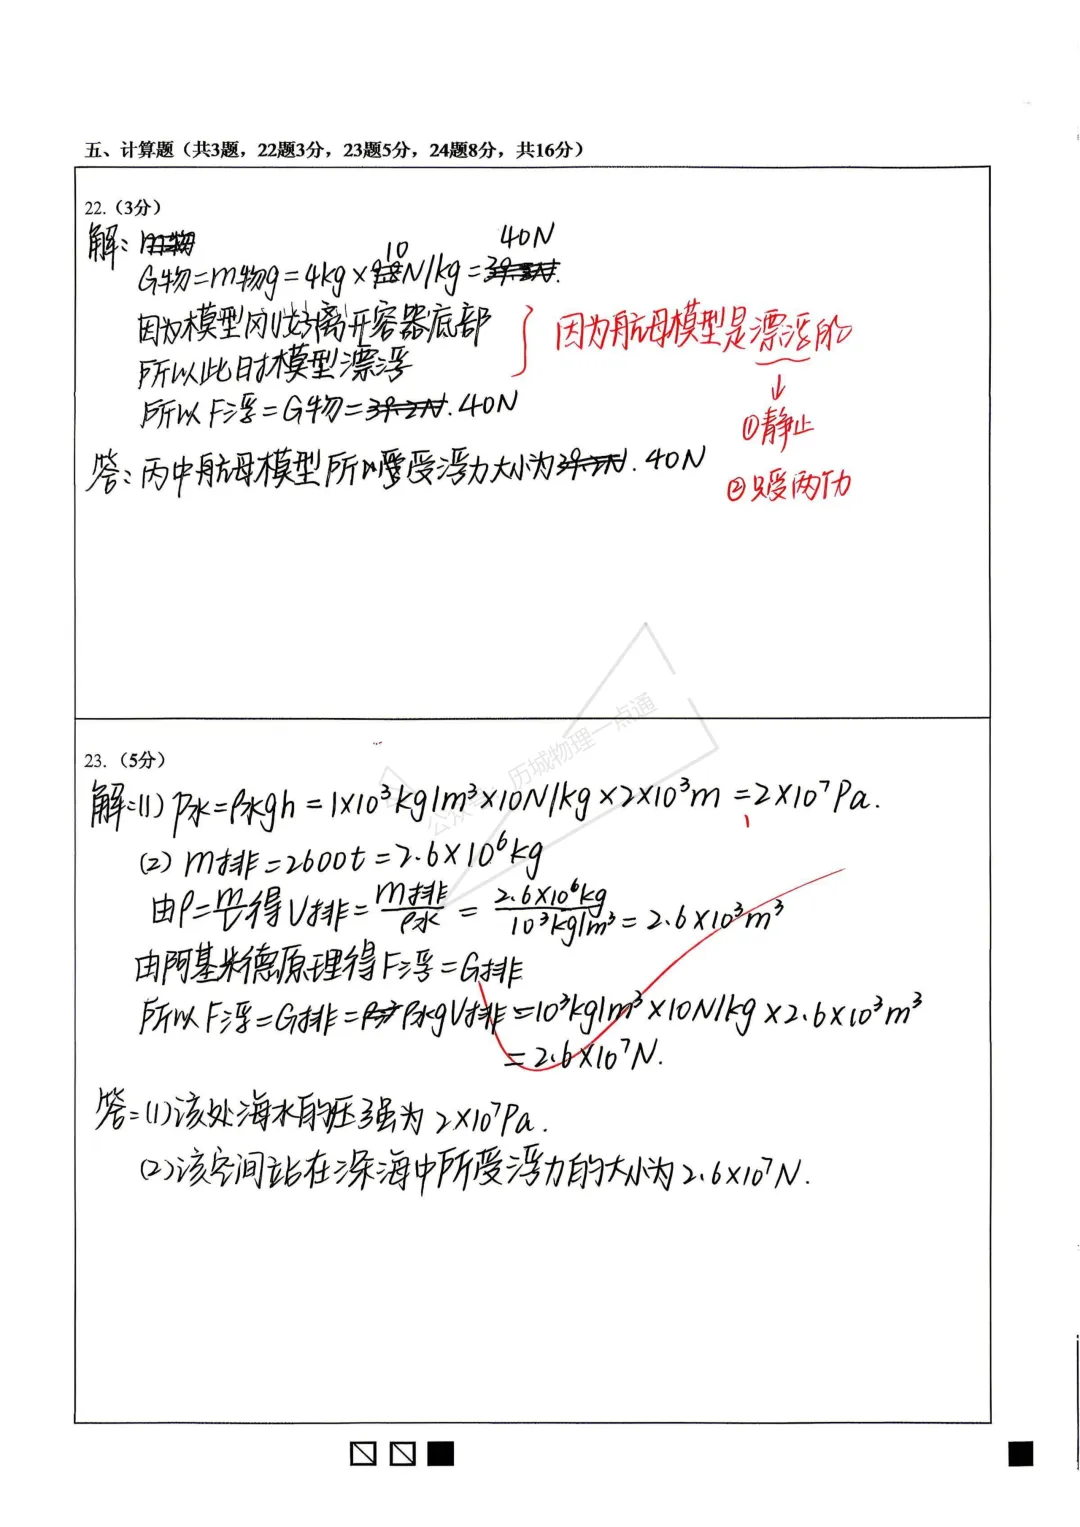 五、计算题（共3题，22题3分，23题5分，24题8分，共16分）
22.（3分）
解: m物
G物=m物g=4kg×9.8 10 N/kg=39.2N. 40N
因为模型刚好离开容器底部
所以此时模型漂浮
所以F浮=G物=39.2N. 40N
答:丙中航母模型所受浮力大小为39.2N. 40N
因为航母模型是漂浮的
↓
①静止
②只受两个力
公众号·历城物理一点通
23.（5分）
解:(1) P水=ρ水gh=1×10³kg/m³×10N/kg×2×10³m=2×10⁷Pa.
(2) m排=2600t=2.6×10⁶kg
由ρ=m/V得V排=m排/ρ水=2.6×10⁶kg/10³kg/m³=2.6×10³m³
由阿基米德原理得F浮=G排
所以F浮=G排=ρ水gV排=10³kg/m³×10N/kg×2.6×10³m³
=2.6×10⁷N.
答:(1)该处海水的压强为2×10⁷Pa.
(2)该空间站在深海中所受浮力的大小为2.6×10⁷N.